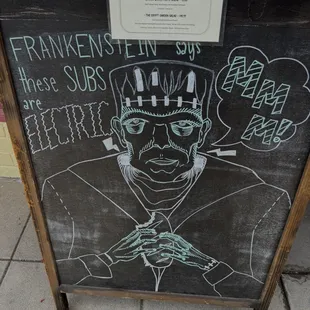 FRANKENSTEIN says
these SUBS
are
ELECTRIC
MM
M!